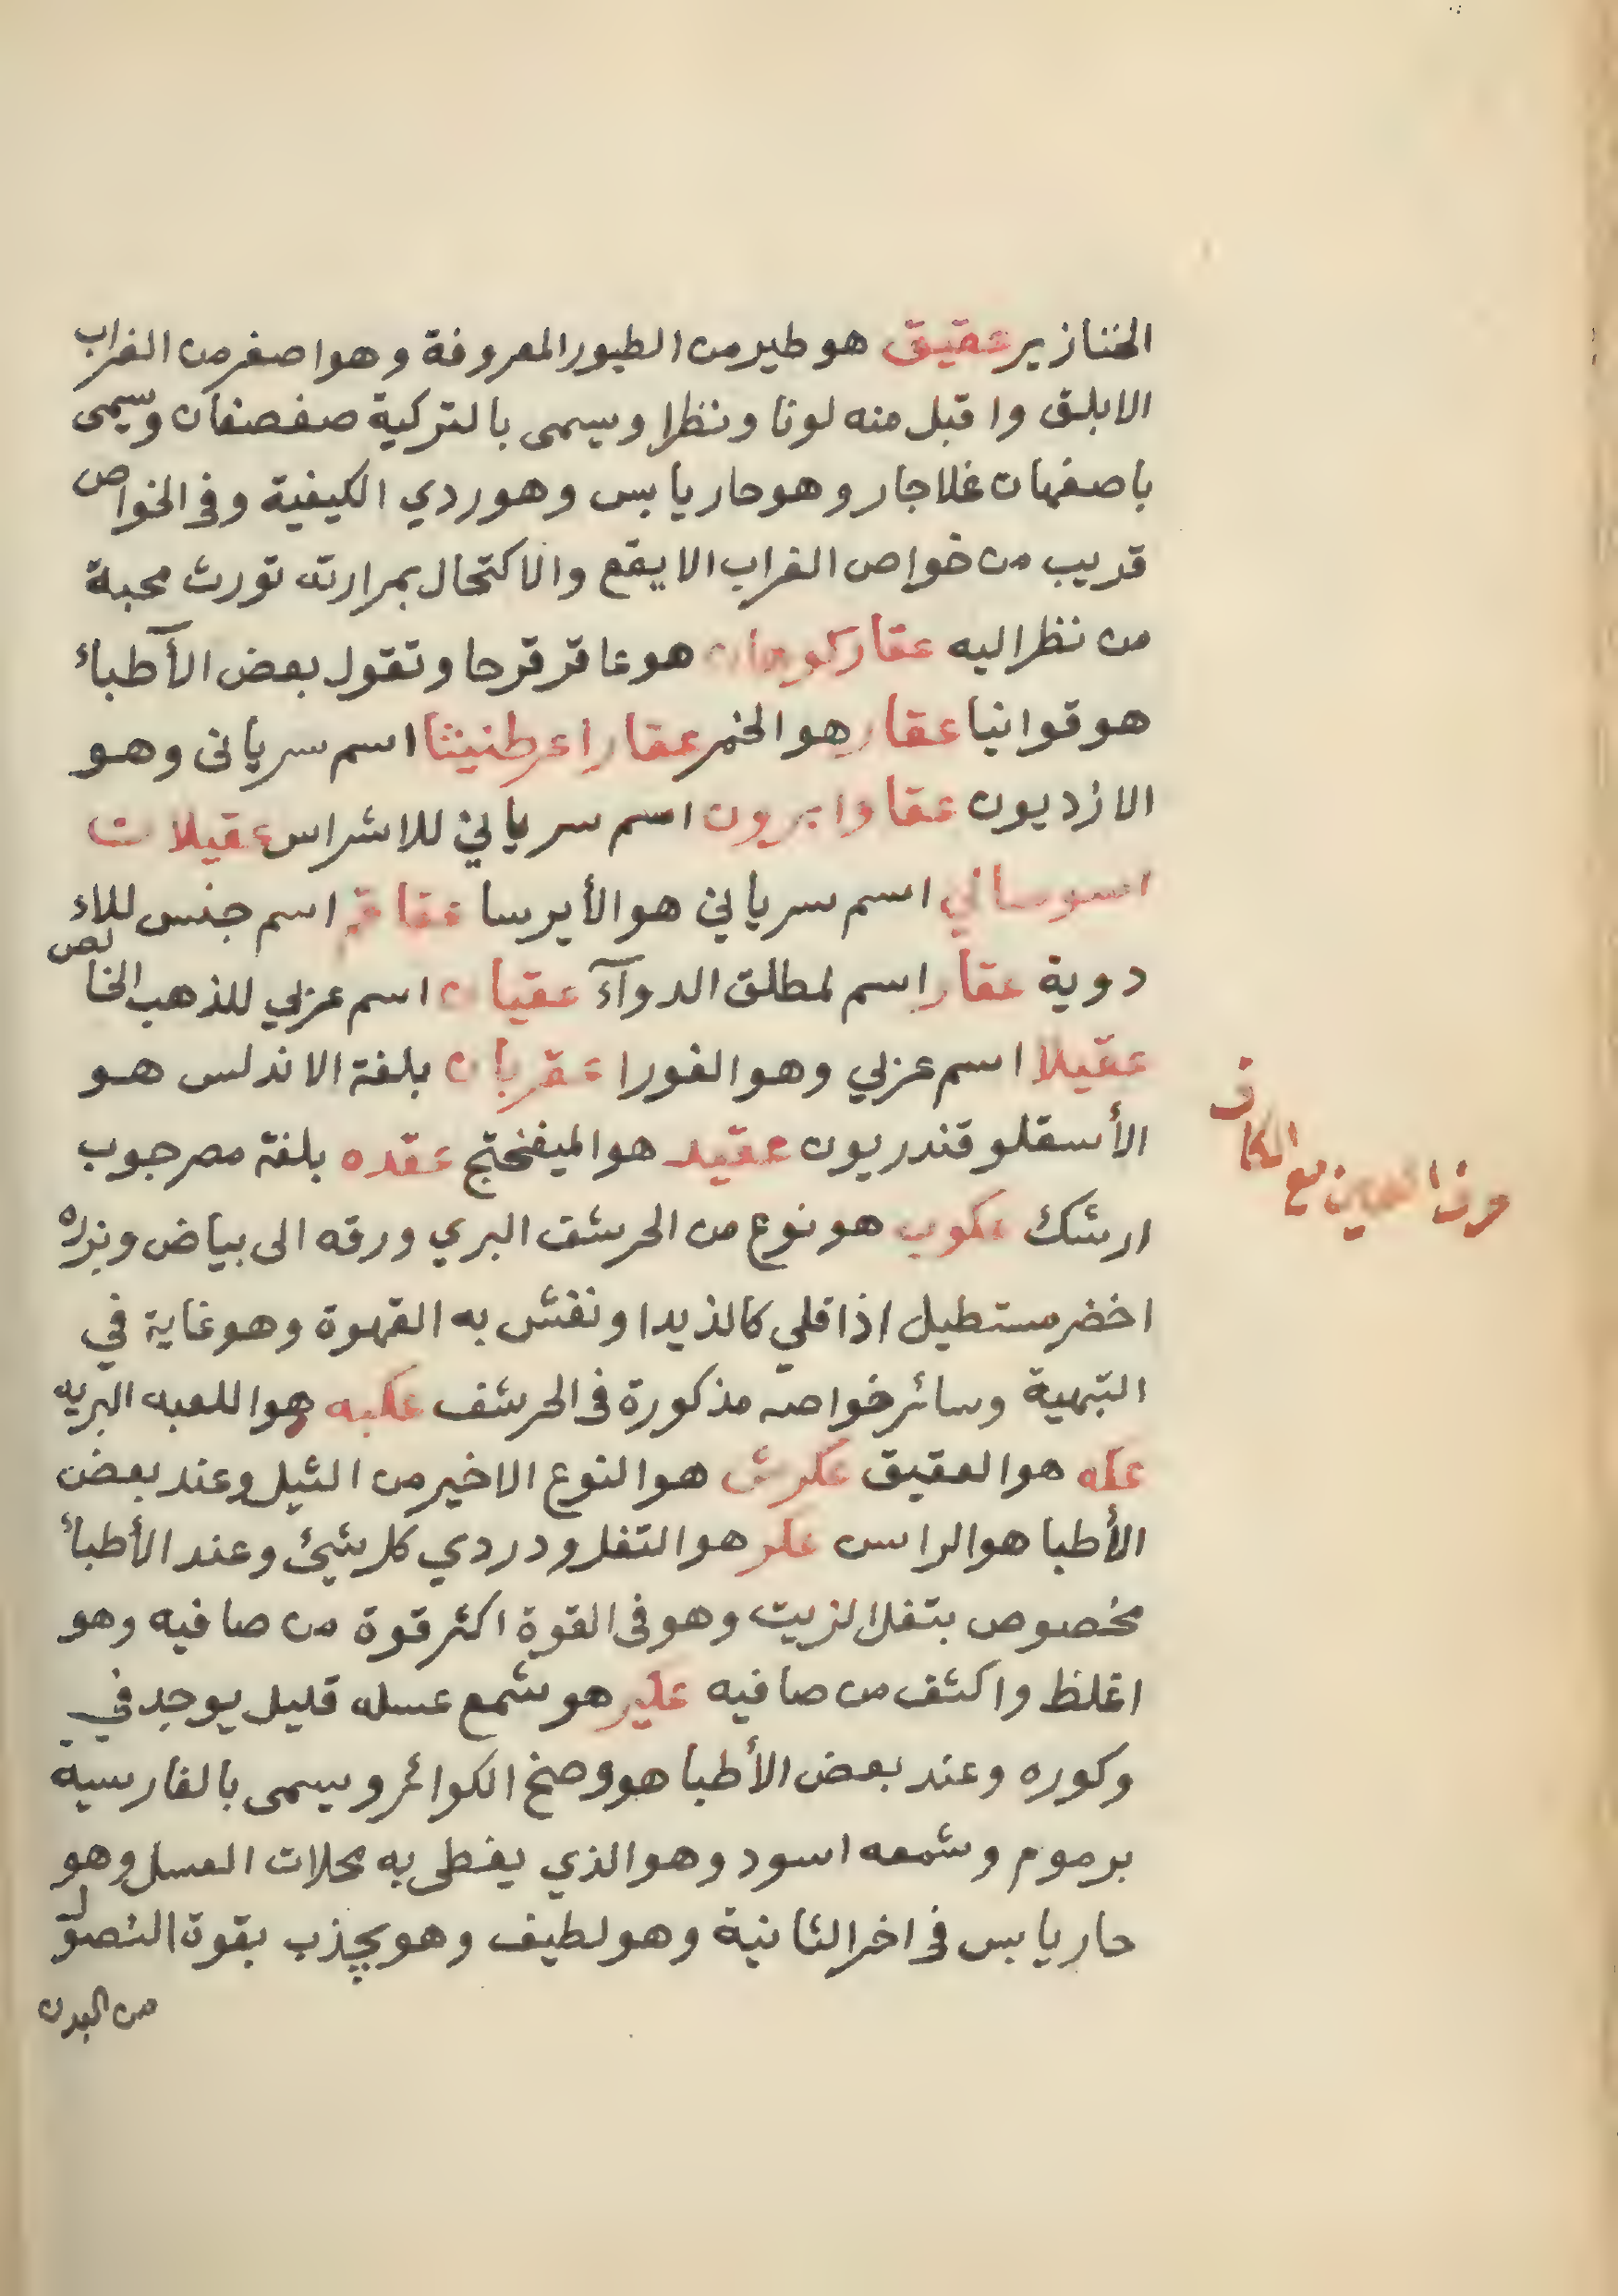 الخنازير عقيق هو طير من الطيور المعروفة وهو اصغر من الغراب
الابلق واقبل منه لونا ونظرا ويسمى بالتركية صغصغان ويسمى
باصفهان غلاجار وهو حار يابس وهو ردي الكيفية وفى الخواص
قريب من خواص الغراب الايقع والاكتحال بمرارته تورث محبة
من نظر اليه عقار هو عاقر قرحا وتقول بعض الأطباء
هو قوانيا عقار هو الخمر عقار اعرطنيثا اسم سريانى وهو
الازديون عقار اسم سرياني للاشراس عقيلات
اسوساني اسم سرياني هو الأيرسا عقاقر اسم جنس للاء
دوية عقار اسم لمطلق الدوآء عقيان اسم عربي للذهب الخالص
عقيلا اسم عربي وهو الغورا عقربان بلغة الاندلس هو
الأسقلوقندريون عقيد هو الميفختج عقده بلغة مصر جوب
حرف العين مع الكاف
ارشك عكوب هو نوع من الحرشف البري ورقه الى بياض وبزره
اخضر مستطيل اذا قلي كالذيدا ونفش به القهوة وهو غاية في
التبهية وسائر خواصه مذكورة فى الحرشف عكبه هو اللعبه البربريه
عكه هو العقيق عكرش هو النوع الاخير من الثيل وعند بعض
الأطبا هو الراسن عكر هو التفل ودردي كل شيئ وعند الأطباء
مخصوص بتفل الزيت وهو فى القوة اكثر قوة من صافيه وهو
اغلظ واكثف من صافيه عكبر هو شمع عسله قليل يوجد في
وكوره وعند بعض الأطبا هو وصخ الكوائر ويسمى بالفارسية
برموم وشمعه اسود وهو الذي يغطى به محلات العسل وهو
حار يابس فى اخر الثانية وهو لطيف وهو يجذب بقوة النصول
من البدن